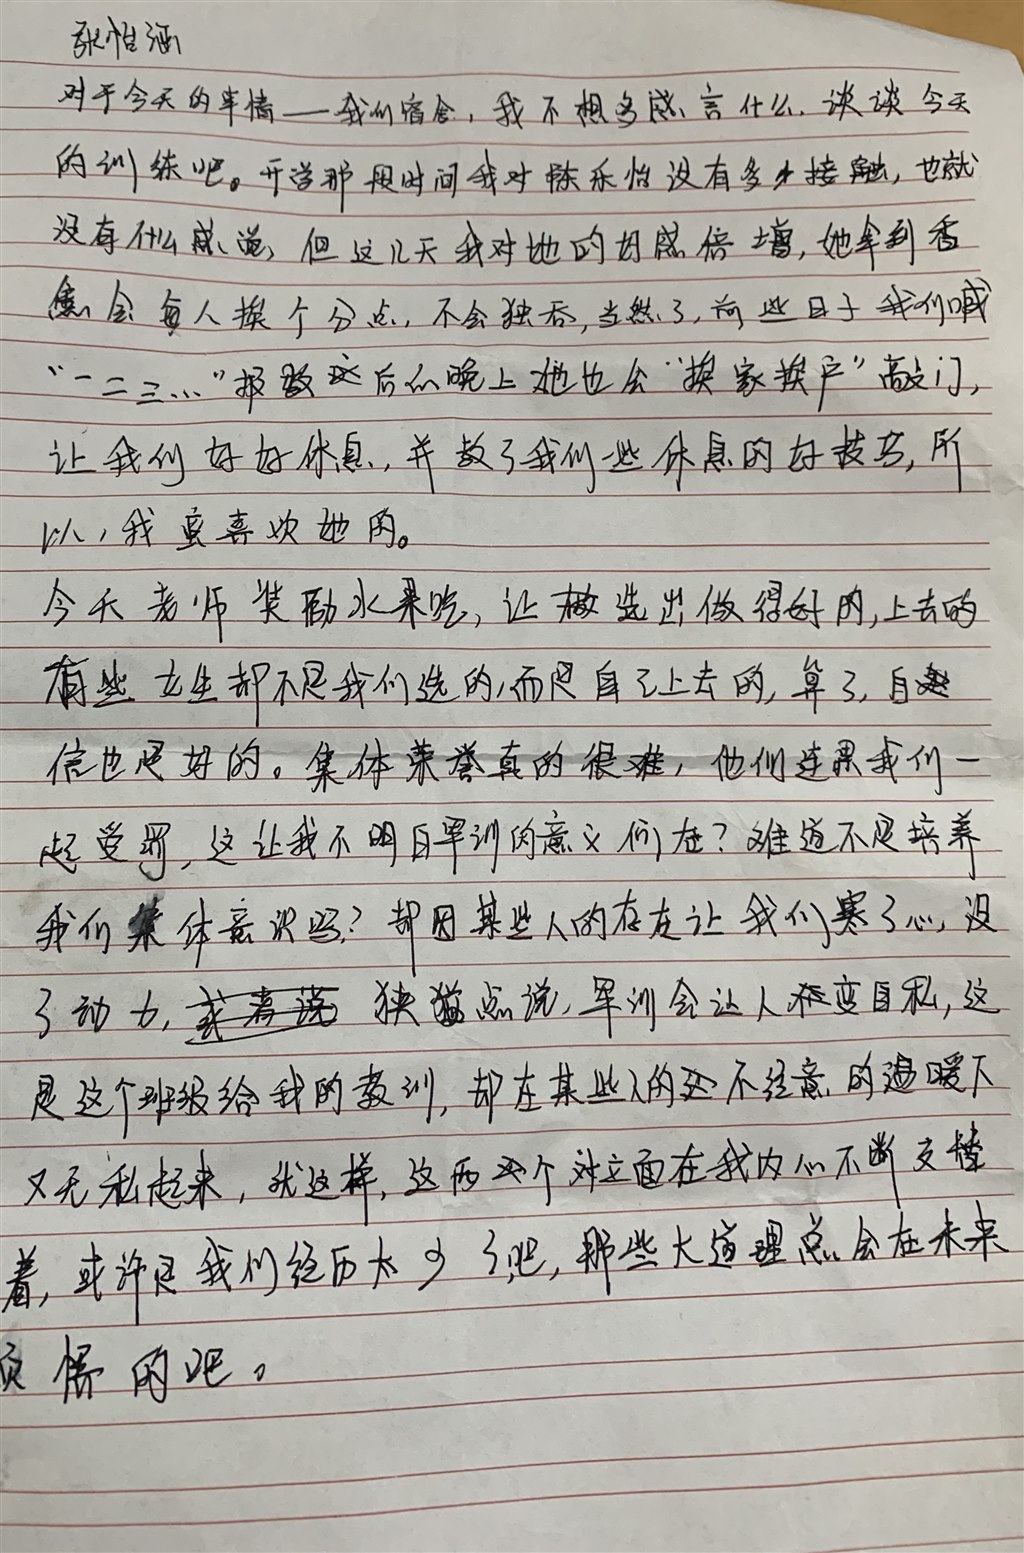 张怡涵
对于今天的事情——我们宿舍，我不想多感言什么，谈谈今天
的训练吧。开学那段时间我对陈乐怡没有多少接触，也就
没有什么感觉，但这几天我对她的好感倍增，她拿到香
蕉会每人挨个分点，不会独吞，当然了，前些日子我们喊
“一二三…”报数后的晚上她也会“挨家挨户”敲门，
让我们好好休息，并教了我们一些休息的好技巧，所
以，我蛮喜欢她的。
今天老师奖励水果吃，让选出做得好的，上去的
有些女生却不是我们选的，而是自己上去的，算了，自
信也是好的。集体荣誉真的很难，他们连累我们一
起受罚，这让我不明白军训的意义何在？难道不是培养
我们集体意识吗？却因某些人的存在让我们寒了心，没
了动力，狭猫点说，军训会让人变自私，这
是这个班级给我的教训，却在某些人的不经意的温暖下
又无私起来，就这样，这两个对立面在我内心不断交替
着，或许是我们经历太少了吧，那些大道理总会在未来
领悟的吧。